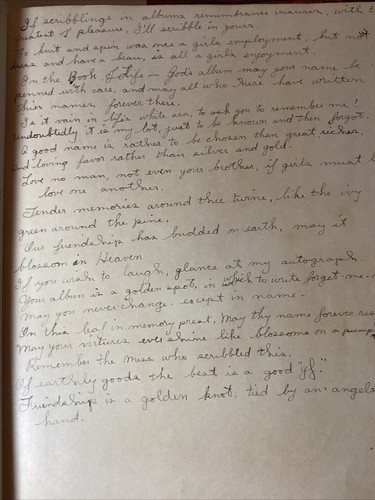 If scribblings in albums remembrance insures, with t
eatest of pleasure I'll scribble in yours
To knit and spin was once a girls employment, but now
dress and have a beau, is all a girls enjoyment.
In the Book of Life - God's album may your name be
penned with care, and may all who here have written
thier names forever there.
Is it vain in life's white sea, to ask you to remember me?
undoubtedly it is my lot, just to be known and then forgot.
A good name is rather to be chosen than great riches,
and loving favor rather than silver and gold.
Love no man, not even your brother, if girls must l
love one another.
Tender memories around thee twine, like the ivy
green around the pine.
Our friendship has budded on earth, may it
blossom in Heaven
If you wish to laugh, glance at my autograph.
Your album is a golden spot, in which to write forget-me-n
May you never change - except in name -
On this leaf in memory prest, May thy name forever res
May your virtures ever shine like blossoms on a pump
Remember the Miss who scribbled this.
Of earthly goods the best is a good "yf."
Friendship is a golden knot, tied by an angels
hand.